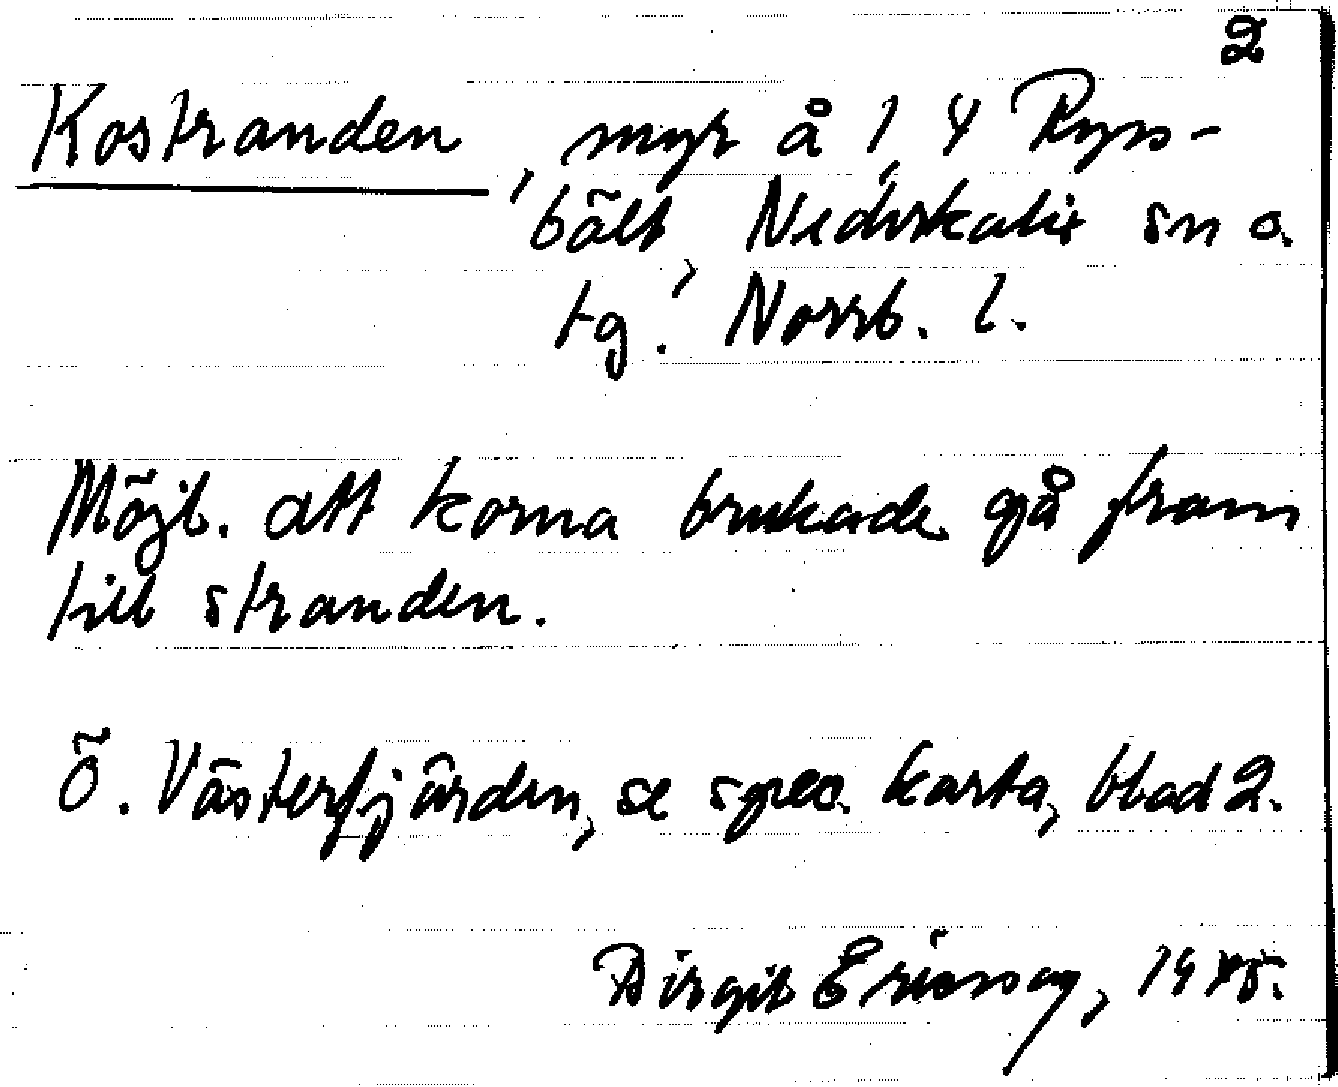 2
Kostranden, myr å 1, 4 Ryss-
bält, Nederkalix sn o.
tg., Norrb. l.
Möjl. att korna brukade gå fram
till stranden.
Ö. Västerfjärden, se spec. karta, blad 2.
Birgit Ericsson, 1945.